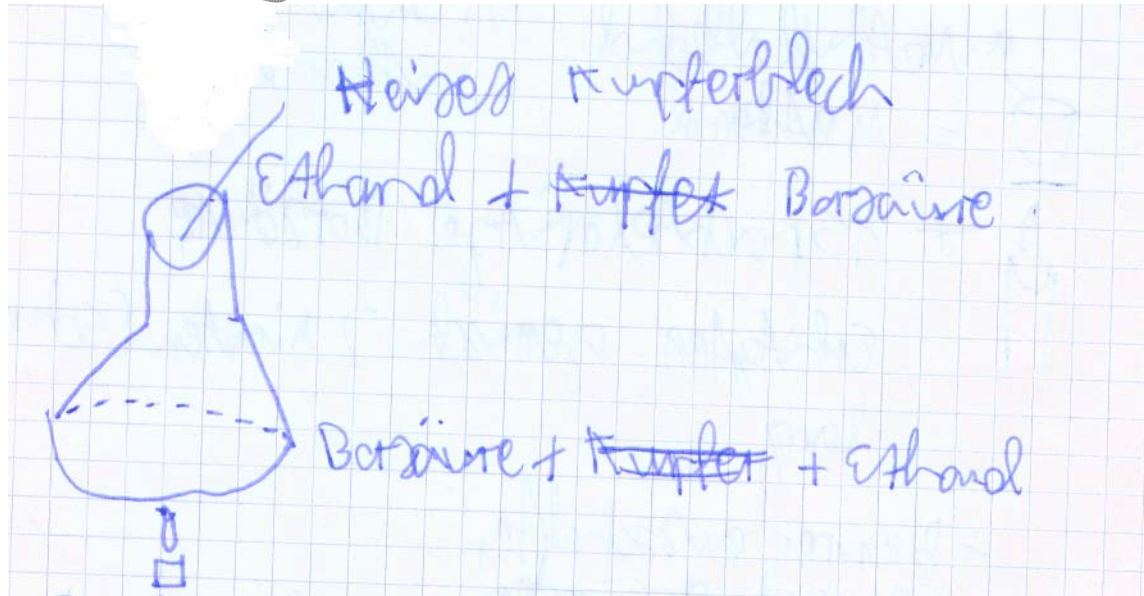 Heises Kupferblech
Ethanol + Kupfer Borsäure
Borsäure + Kupfer + Ethanol